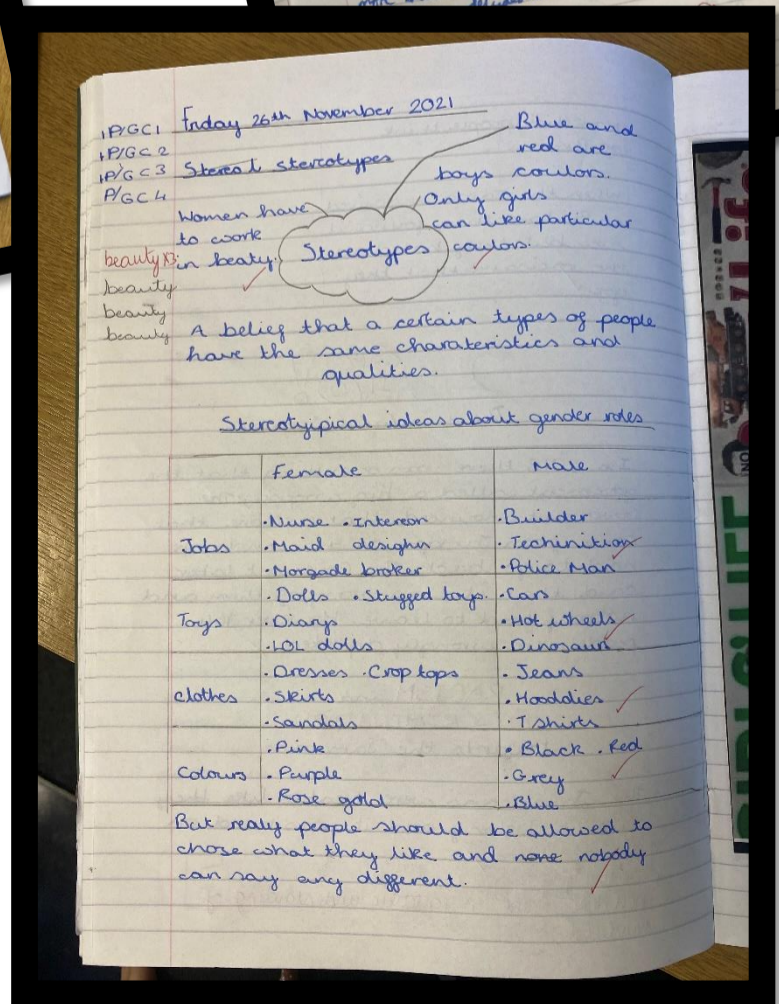 Friday 26th November 2021
P/GC1
P/GC2
P/GC3
P/GC4
Stereot stereotypes
Blue and
red are
boys coulors.
Only girls
can like particular
coulors.
Women have
to work
in beaty.
Stereotypes
beauty x3
beauty
beauty
beauty
A belief that a certain types of people
have the same charateristics and
qualities.
Stereotyipical ideas about gender roles
Female Male
Jobs
·Nurse ·Intereon
·Maid desighn
·Morgade broker
·Builder
·Techinition
·Police Man
Toys
·Dolls ·Stugged toys.
·Diarys
·LOL dolls
·Cars
·Hot wheels
·Dinosaurs
clothes
·Dresses ·Crop tops
·Skirts
·Sandals
·Jeans
·Hooddies
·T shirts
Colours
·Pink
·Purple
·Rose gold
·Black ·Red
·Grey
·Blue
But realy people should be allowed to
chose what they like and none nobody
can say any different.